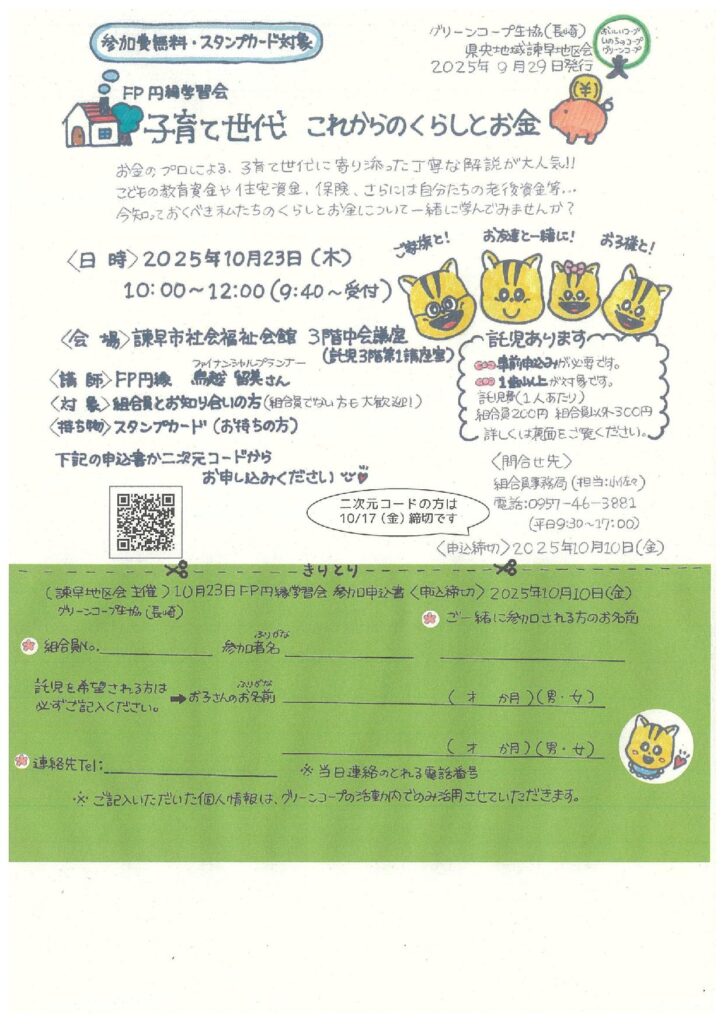 参加費無料・スタンプカード対象
グリーンコープ生協(長崎)
県央地域諫早地区会
2025年9月29日発行
おいしいコープ
いのちのコープ
グリーンコープ
FP円縁学習会
子育て世代 これからのくらしとお金
お金のプロによる、子育て世代に寄り添った丁寧な解説が大人気!!
こどもの教育資金や住宅資金、保険、さらには自分たちの老後資金等…
今知っておくべき私たちのくらしとお金について一緒に学んでみませんか?
〈日 時〉2025年10月23日(木)
10:00~12:00(9:40~受付)
ご家族と!
お友達と一緒に!
お子様と!
〈会 場〉諫早市社会福祉会館 3階中会議室
(託児3階第1講座室)
ファイナンシャルプランナー
〈講 師〉FP円縁 鳥越 留美さん
〈対 象〉組合員とお知り合いの方(組合員でない方も大歓迎!)
〈持ち物〉スタンプカード(お持ちの方)
託児あります
事前申込みが必要です。
1歳以上が対象です。
託児費(1人あたり)
組合員200円 組合員以外300円
詳しくは裏面をご覧ください。
下記の申込書か二次元コードから
お申し込みください
二次元コードの方は
10/17(金)締切です
〈問合せ先〉
組合員事務局(担当:小佐々)
電話:0957-46-3881
(平日9:30~17:00)
〈申込締切〉2025年10月10日(金)
きりとり
(諫早地区会主催)10月23日FP円縁学習会 参加申込書〈申込締切〉2025年10月10日(金)
グリーンコープ生協(長崎)
ご一緒に参加される方のお名前
ふりがな
組合員No. 参加者名
託児を希望される方は
必ずご記入ください。
ふりがな
➡お子さんのお名前 (才 か月)(男・女)
(才 か月)(男・女)
連絡先Tel: ※当日連絡のとれる電話番号
※ご記入いただいた個人情報は、グリーンコープの活動内でのみ活用させていただきます。